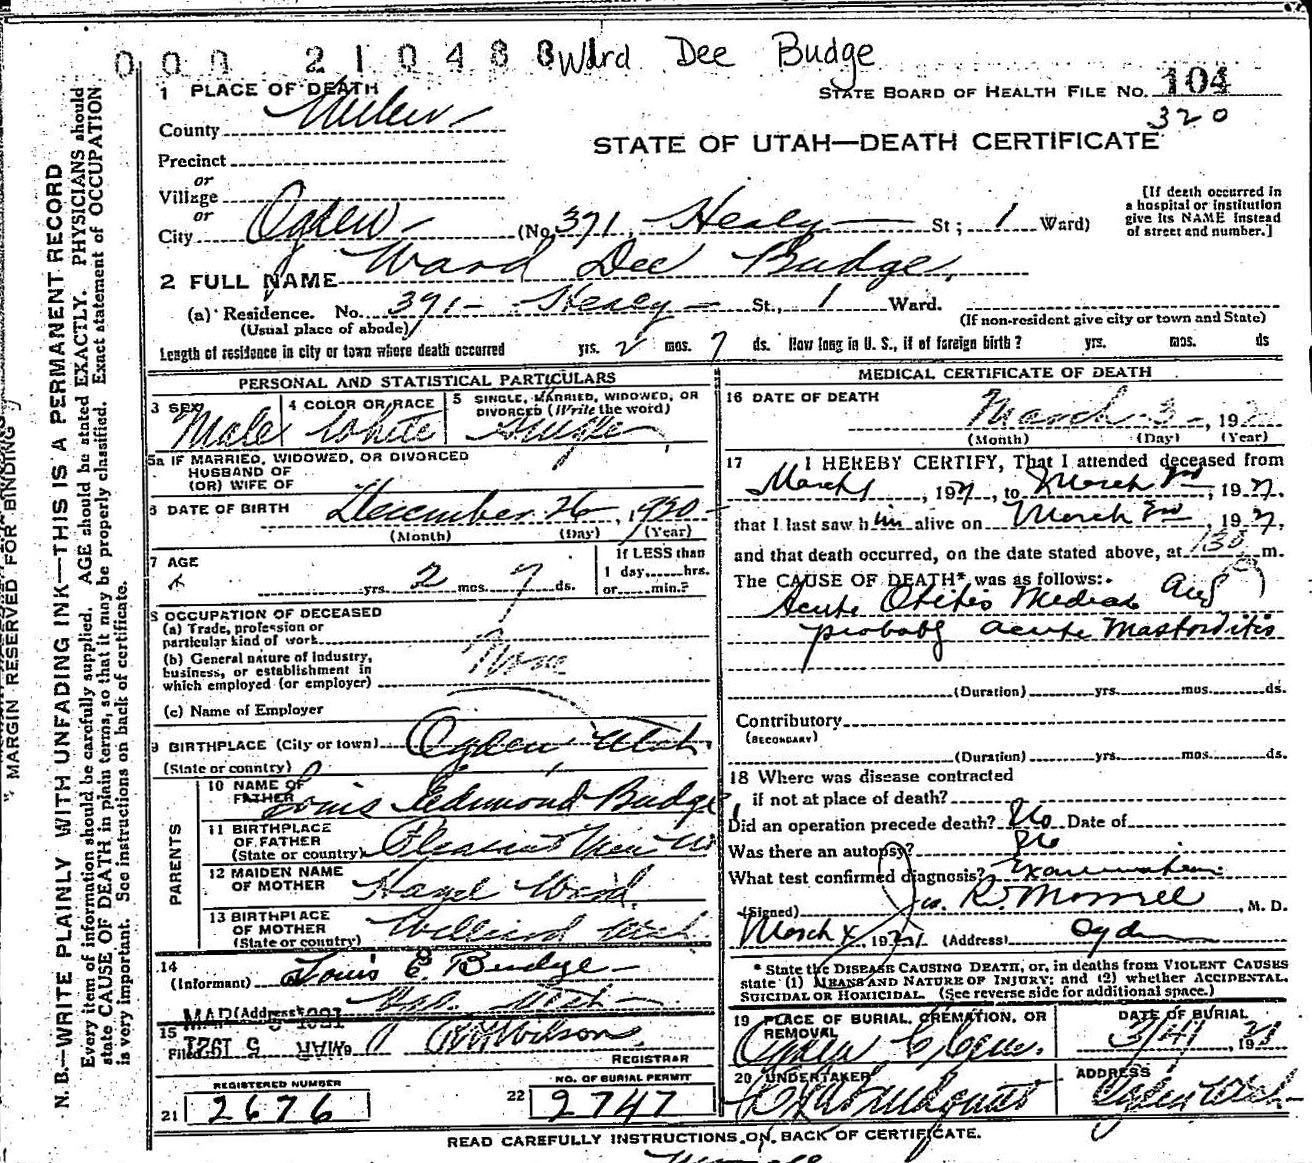 000 210488 Ward Dee Budge
1 PLACE OF DEATH
STATE BOARD OF HEALTH FILE NO. 104
320
County Weber
STATE OF UTAH—DEATH CERTIFICATE
Precinct
or
Village
or
City Ogden (No. 391, Healy St; 1 Ward)
[If death occurred in
a hospital or institution
give its NAME instead
of street and number.]
2 FULL NAME Ward Dee Budge
(a) Residence. No. 391 Healy St., 1 Ward.
(Usual place of abode)
(If non-resident give city or town and State)
Length of residence in city or town where death occurred yrs. 2 mos. 7 ds. How long in U. S., if of foreign birth? yrs. mos. ds
PERSONAL AND STATISTICAL PARTICULARS
3 SEX Male
4 COLOR OR RACE White
5 SINGLE, MARRIED, WIDOWED, OR
DIVORCED (Write the word) Single
5a IF MARRIED, WIDOWED, OR DIVORCED
HUSBAND OF
(OR) WIFE OF
6 DATE OF BIRTH December 26, 1920
(Month) (Day) (Year)
7 AGE
yrs. 2 mos. 7 ds.
If LESS than
1 day,......hrs.
or......min.?
8 OCCUPATION OF DECEASED
(a) Trade, profession or
particular kind of work
(b) General nature of industry,
business, or establishment in
which employed (or employer) None
(c) Name of Employer
9 BIRTHPLACE (City or town) Ogden, Utah
(State or country)
PARENTS
10 NAME OF
FATHER Louis Edmond Budge
11 BIRTHPLACE
OF FATHER
(State or country) Pleasant View U
12 MAIDEN NAME
OF MOTHER Hazel Ward
13 BIRTHPLACE
OF MOTHER
(State or country) Willard Utah
14
(Informant) Louis E Budge
(Address) Ogd. Utah
15
Filed MAR 5 1921 Wilson
REGISTRAR
REGISTERED NUMBER
21 2676
NO. OF BURIAL PERMIT
22 2747
MEDICAL CERTIFICATE OF DEATH
16 DATE OF DEATH
March 3, 192
(Month) (Day) (Year)
17 I HEREBY CERTIFY, That I attended deceased from
March 1, 192, to March 3rd, 192
that I last saw him alive on March 3rd, 192
and that death occurred, on the date stated above, at 130 m.
The CAUSE OF DEATH* was as follows:
Acute Otitis Media and
probably acute Mastoiditis
(Duration) yrs. mos. ds.
Contributory
(SECONDARY)
(Duration) yrs. mos. ds.
18 Where was disease contracted
if not at place of death?
Did an operation precede death? No Date of
Was there an autopsy? No
What test confirmed diagnosis? Examination
(Signed) Jos. R. Morrell, M. D.
March 4, 1921 (Address) Ogden
* State the DISEASE CAUSING DEATH, or, in deaths from VIOLENT CAUSES
state (1) MEANS AND NATURE OF INJURY; and (2) whether ACCIDENTAL,
SUICIDAL OR HOMICIDAL. (See reverse side for additional space.)
19 PLACE OF BURIAL, CREMATION, OR
REMOVAL
Ogden
DATE OF BURIAL
3/4, 1921
20 UNDERTAKER
ADDRESS
Ogden Utah
READ CAREFULLY INSTRUCTIONS ON BACK OF CERTIFICATE.
MARGIN RESERVED FOR BINDING
N. B.—WRITE PLAINLY WITH UNFADING INK—THIS IS A PERMANENT RECORD
Every item of information should be carefully supplied. AGE should be stated EXACTLY. PHYSICIANS should
state CAUSE OF DEATH in plain terms, so that it may be properly classified. Exact statement of OCCUPATION
is very important. See instructions on back of certificate.